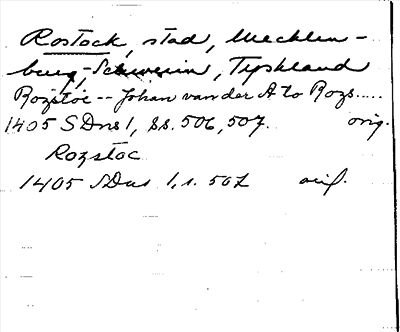 Rostock, stad, Mecklen-
burg-Schwerin, Tyskland
Rozstoc -- Johan van der A to Rozs.....
1405 SDns 1, ss. 506, 507. orig.
Rozstoc
1405 SDns 1, s. 507 orig.